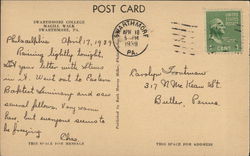 POST CARD
SWARTHMORE COLLEGE
MAGILL WALK
SWARTHMORE, PA.
SWARTHMORE
APR 18
5-PM
1939
PA.
Philadelphia April 17, 1939
Running lightly tonight,
Got your letter with
in it. Went out to Eastern
Baptist Seminary and saw
several fellows. Very warm
here but everyone seems to
be
Chas.
Carolyn Troutman
317 N McKean St
Butler, Penna.
THIS SPACE FOR MESSAGE
THIS SPACE FOR ADDRESS